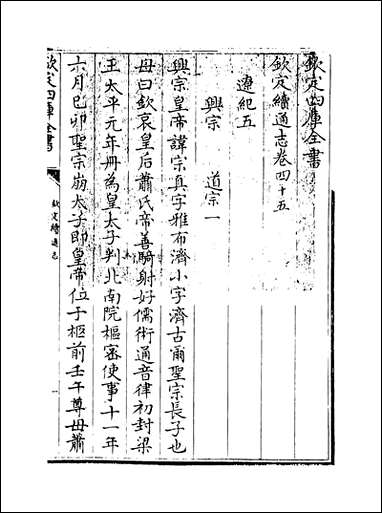 欽定四庫全書
欽定續通志卷四十五
遼紀五
興宗　道宗一
興宗皇帝諱宗真字雅布濟小字濟古爾聖宗長子也
母曰欽哀皇后蕭氏帝善騎射好儒術通音律初封梁
王太平元年册為皇太子判北南院樞密使事十一年
六月己卯聖宗崩太子即皇帝位于柩前壬午尊母蕭
欽定四庫全書
欽定續通志
一